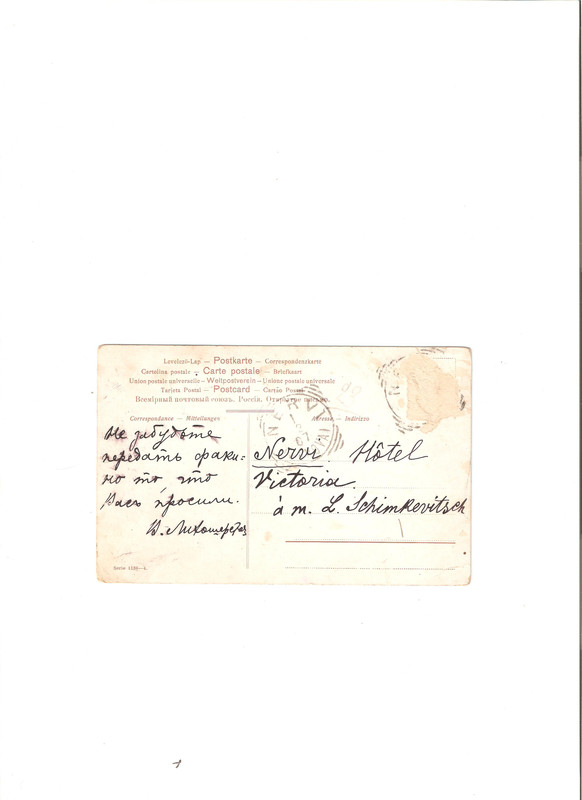 Levelező-Lap — Postkarte — Correspondenzkarte
Cartolina postale — Carte postale — Briefkaart
Union postale universelle — Weltpostverein — Unione postale universale
Tarjeta Postal — Postcard — Cartão Postal
Всемірный почтовый союзъ. Россія. Открытое
Correspondance — Mittheilungen
Adresse — Indirizzo
NERVI
07
Не забудьте
передать факи-
но то что
Васъ просили.
В.
Nervi Hôtel
Victoria.
á m. L. Schimkevitsch
Serie
1